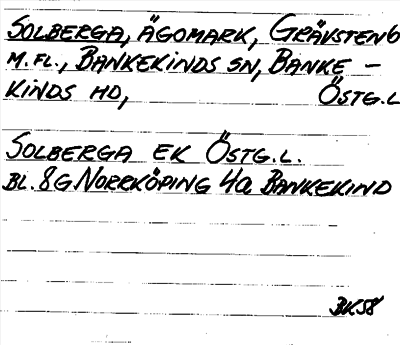 SOLBERGA, ÄGOMARK, GRÄVSTEN 6
M.FL., BANKEKINDS SN, BANKE –
KINDS HD, ÖSTG.L
SOLBERGA EK ÖSTG.L.
BL. 8G NORRKÖPING 4a BANKEKIND
BK58